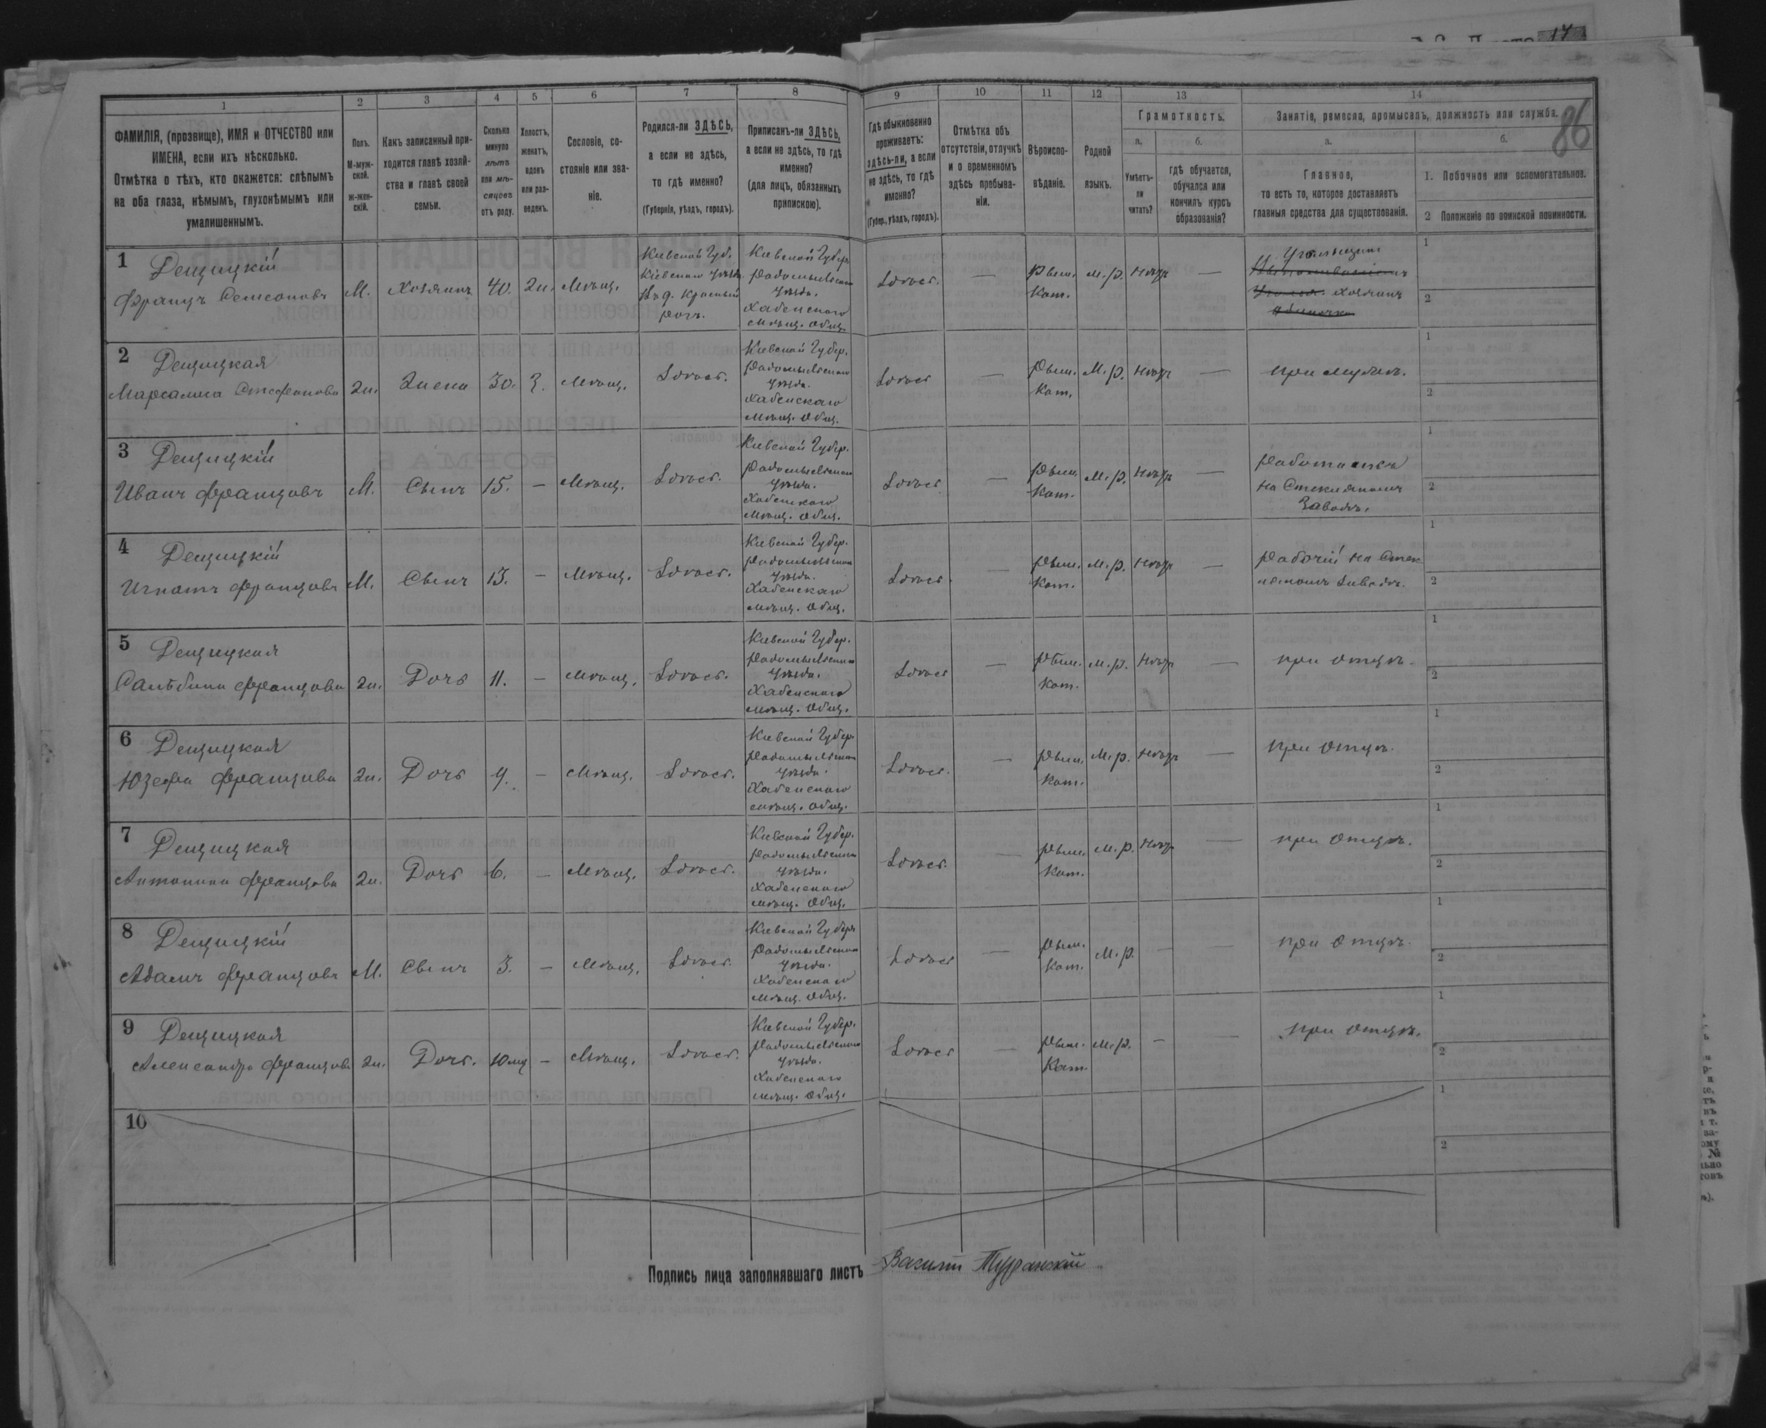 17
86
1
2
3
4
5
6
7
8
9
10
11
12
13
14
ФАМИЛІЯ, (прозвище), ИМЯ и ОТЧЕСТВО или
ИМЕНА, если ихъ нѣсколько.
Отмѣтка о тѣхъ, кто окажется: слѣпымъ
на оба глаза, нѣмымъ, глухонѣмымъ или
умалишеннымъ.
Полъ.
М-муж-
ской.
Ж-жен-
скій.
Какъ записанный при-
ходится главѣ хозяй-
ства и главѣ своей
семьи.
Сколько
минуло
лѣтъ
или мѣ-
сяцевъ
отъ роду.
Холостъ,
женатъ,
вдовъ
или раз-
веденъ.
Сословіе, со-
стояніе или зва-
ніе.
Родился-ли ЗДѢСЬ,
а если не здѣсь,
то гдѣ именно?
(Губернія, уѣздъ, городъ).
Приписанъ-ли ЗДѢСЬ,
а если не здѣсь, то гдѣ
именно?
(для лицъ, обязанныхъ
припискою).
Гдѣ обыкновенно
проживаетъ:
здѣсь-ли, а если
не здѣсь, то гдѣ
именно?
(Губер., уѣздъ, городъ).
Отмѣтка объ
отсутствіи, отлучкѣ
и о временномъ
здѣсь пребыва-
ніи.
Вѣроиспо-
вѣданіе.
Родной
языкъ.
Грамотность.
а.
Умѣетъ-
ли
читать?
б.
гдѣ обучается,
обучался или
кончилъ курсъ
образованія?
Занятія, ремесла, промыселъ, должность или служба.
а.
Главное,
то есть то, которое доставляетъ
главныя средства для существованія.
б.
1. Побочное или вспомогательное.
2 Положеніе по воинской повинности.
1 Дещицкій
Францъ М. Хозяинъ 40. Ж. Мѣщ.
Кіевской Губ.
Кіевскаго уѣзда
Кіевской Губер.
Радомысльскаго
уѣзда.
Хабенскаго
мѣщ. общ.
Здѣсь. — Рим. Кат. М. р. Нѣтъ —
Хозяинъ
1
2
2 Дещицкая
Стефанова Ж. Жена 30. З. Мѣщ. Здѣсь.
Кіевской Губер.
Радомысльскаго
уѣзда.
Хабенскаго
мѣщ. общ.
Здѣсь — Рим. Кат. М. р. Нѣтъ — При мужѣ.
1
2
3 Дещицкій
Иванъ Францовъ М. Сынъ 15. — Мѣщ. Здѣсь.
Кіевской Губер.
Радомысльскаго
уѣзда.
Хабенскаго
мѣщ. общ.
Здѣсь — Рим. Кат. М. р. Нѣтъ —
Работникъ
на Стеклянномъ
Заводѣ.
1
2
4 Дещицкій
Игнатъ Францовъ М. Сынъ 13. — Мѣщ. Здѣсь.
Кіевской Губер.
Радомысльскаго
уѣзда.
Хабенскаго
мѣщ. общ.
Здѣсь — Рим. Кат. М. р. Нѣтъ —
Рабочій на Стек
лянномъ Заводѣ.
1
2
5 Дещицкая
Францова Ж. Дочь 11. — Мѣщ. Здѣсь.
Кіевской Губер.
Радомысльскаго
уѣзда.
Хабенскаго
мѣщ. общ.
Здѣсь — Рим. Кат. М. р. Нѣтъ — При отцѣ.
1
2
6 Дещицкая
Юзефа Францова Ж. Дочь 9. — Мѣщ. Здѣсь.
Кіевской Губер.
Радомысльскаго
уѣзда.
Хабенскаго
мѣщ. общ.
Здѣсь. — Рим. Кат. М. р. Нѣтъ — При отцѣ.
1
2
7 Дещицкая
Антонина Францова Ж. Дочь 6. — Мѣщ. Здѣсь.
Кіевской Губер.
Радомысльскаго
уѣзда.
Хабенскаго
мѣщ. общ.
Здѣсь. — Рим. Кат. М. р. Нѣтъ — При отцѣ.
1
2
8 Дещицкій
Адамъ Францовъ М. Сынъ 3. — Мѣщ. Здѣсь.
Кіевской Губер.
Радомысльскаго
уѣзда.
Хабенскаго
мѣщ. общ.
Здѣсь — Рим. Кат. М. р. — — При отцѣ.
1
2
9 Дещицкая
Александра Францова Ж. Дочь. 10 мц — Мѣщ. Здѣсь.
Кіевской Губер.
Радомысльскаго
уѣзда.
Хабенскаго
мѣщ. общ.
Здѣсь — Рим. Кат. М. р. — — При отцѣ.
1
2
10
1
2
Подпись лица заполнявшаго листъ